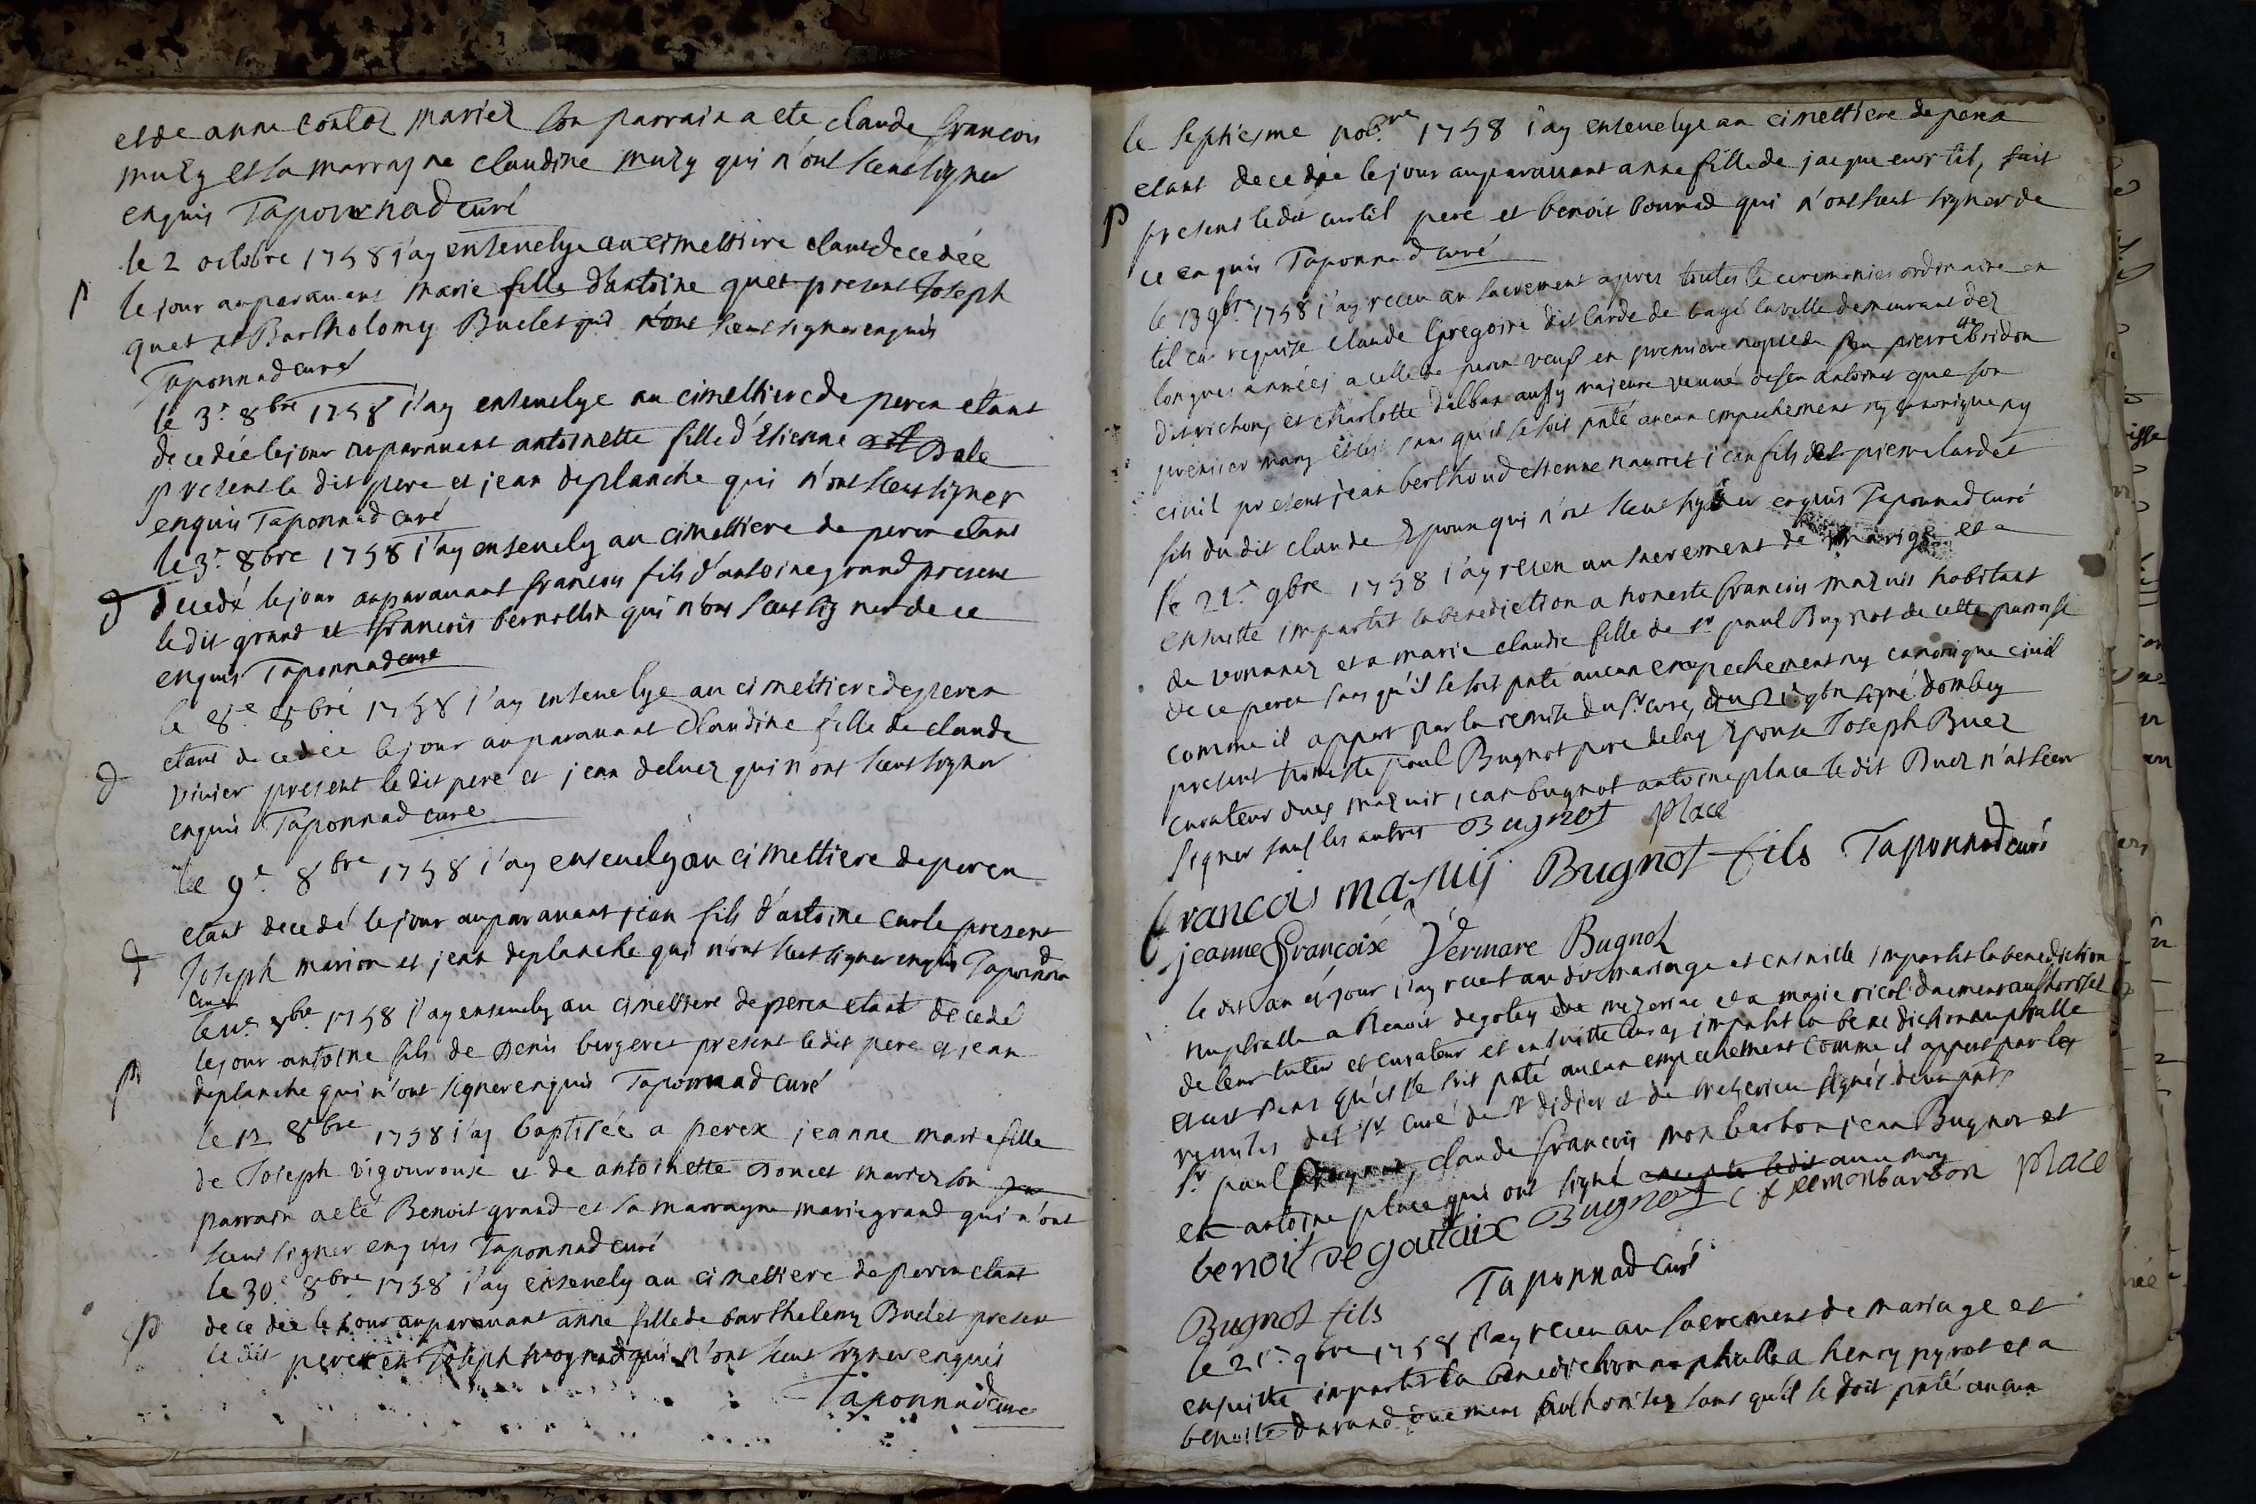 et de anne contot mariez son parrain a ete claude francois
muzy et sa marrayne claudine muzy qui n'ont sceut signer
enquis Taponnad curé
le 2 octobre 1758 j'ay ensevelye au cimettiere etant decedée
p le jour auparavent marie fille d'antoine guet present Joseph
guet et Bartholomy Buclet qui n'ont sceut signer enquis
Taponnad curé
le 3e 8bre 1758 j'ay ensevelye au cimettiere de perex etant
decedée le jour auparavant antoinette fille d'Etienne Dale
present le dit pere et jean deplanche qui n'ont sceut signer
enquis Taponnad curé
le 3e 8bre 1758 j'ay ensevely au cimettiere de perex etant
decedé le jour auparavant francois fils d'antoine grand present
le dit grand et francois bernollin qui n'ont sceut signer de ce
enquis Taponnad curé
le 8e 8bre 1758 j'ay ensevelye au cimettiere de perex
etant decedée le jour auparavant Claudine fille de claude
vivier present le dit pere et jean deluez qui n'ont sceut signer
enquis Taponnad curé
le 9e 8bre 1758 j'ay ensevely au cimettiere de perex
etant decedé le jour auparavant jean fils d'antoine curle present
Joseph marion et jean deplanche qui n'ont sceut signer enquis Taponnad
curé
8bre 1758 j'ay ensevely au cimettiere de perex etant decedé
le jour antoine fils de Denis bergeret present le dit pere et jean
deplanche qui n'ont signer enquis Taponnad curé
le 12 8bre 1758 j'ay baptisée a perex jeanne marie fille
de Joseph vigourouse et de antoinette Doncet mariez son
parrain a eté Benoit grand et sa marrayne marie grand qui n'ont
sceut signer enquis Taponnad curé
le 30e 8bre 1758 j'ay ensevely au cimettiere de perex etant
p decedée le jour auparavant anne fille de barthelemy Buclet present
le dit pere et Joseph qui n'ont sceut signer enquis
Taponnad curé
le septiesme nobre 1758 j'ay ensevelye au cimettiere de perex
etant decedée le jour auparavant anne fille de jacque curtil, fait
p present le dit curtil pere et benoit bonnad qui n'ont sceut signer de
ce enquis Taponnad curé
le 13 9bre 1758 j'ay receu au sacrement apres toutes le ceremonies ordinaire en
tel cas requise claude Gregoire dit larde de bagé la ville demeurant dez
longues années a celle de perex veuf en premiere nopce de feu pierrette bridon
dit vichon, et charlotte dalban aussy majeure veuve de feu antoine que son
premier mary sans qu'il se soit pnté aucun empechement ny canonique ny
civil present jean berthoud etienne nauret jean fils de pierre lardet
fils du dit claude Epoux qui n'ont sceut signer enquis Taponnad curé
le 21e 9bre 1758 j'ay receu au sacrement de mariage et a
ensuitte impartit la benediction a honeste francois mazuis habitant
de vonnaz et a marie claudre fille de sr paul Bugnot de cette parroisse
de ce perex sans qu'il se soit pnté aucun empechement ny canonique civil
comme il appert par la remise du sr curé, du 21 9bre signé dombey
present honeste paul Bugnot pere de lay Epouse Joseph Buez
curateur dudt mazuit, jean bugnot antoine place le dit Buez n'at sceu
signer sauf les autres Bugnot Place
francois mazuij Bugnot fils Taponnad curé
jeanne françoise Vermare Bugnot
le dit an et jour j'ay receu au dit mariage et ensuitte impartit la benediction
nuptialle a Benoit degotey de mezeriac et a marie ricol duement authorisez
de leur tuteur et curateur et ensuitte leur ay impartit la benediction nuptialle
et cest sans qu'il se soit pnté aucun empechement comme il appert par les
remises des sr curé de st didier et de mezeriac signés deument
sr paul Bugnot, claude francois monbarbon jean Bugnot et
et antoine place qui ont signé excepté le dit avec moy
benoit degautaix Bugnot c f demonbarbon place
Bugnot fils Taponnad curé
le 21e 9bre 1758 j'ay receu au sacrement de mariage et
ensuitte impartit la benediction nuptialle a henry pyrot et a
benoite durand duement authorisez sans qu'il se soit pnté aucun